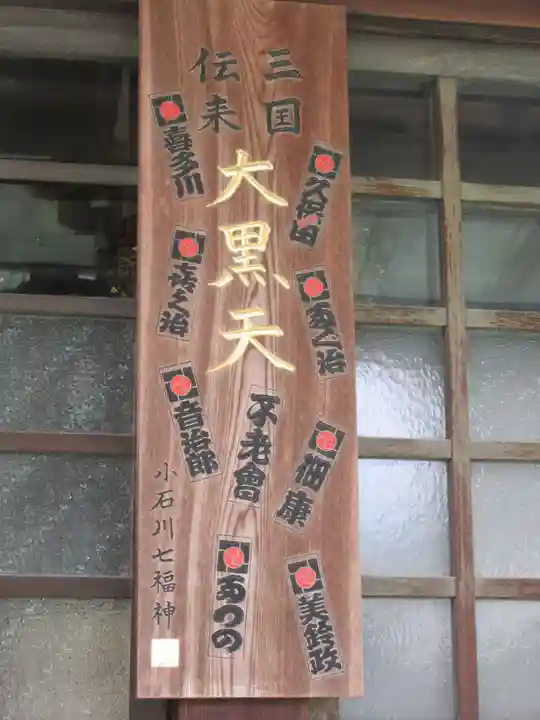 三国
伝来
大黒天
喜多川
久保田
喜之治
音治郎
不老會
佃康
あつの
美鈴政
小石川七福神